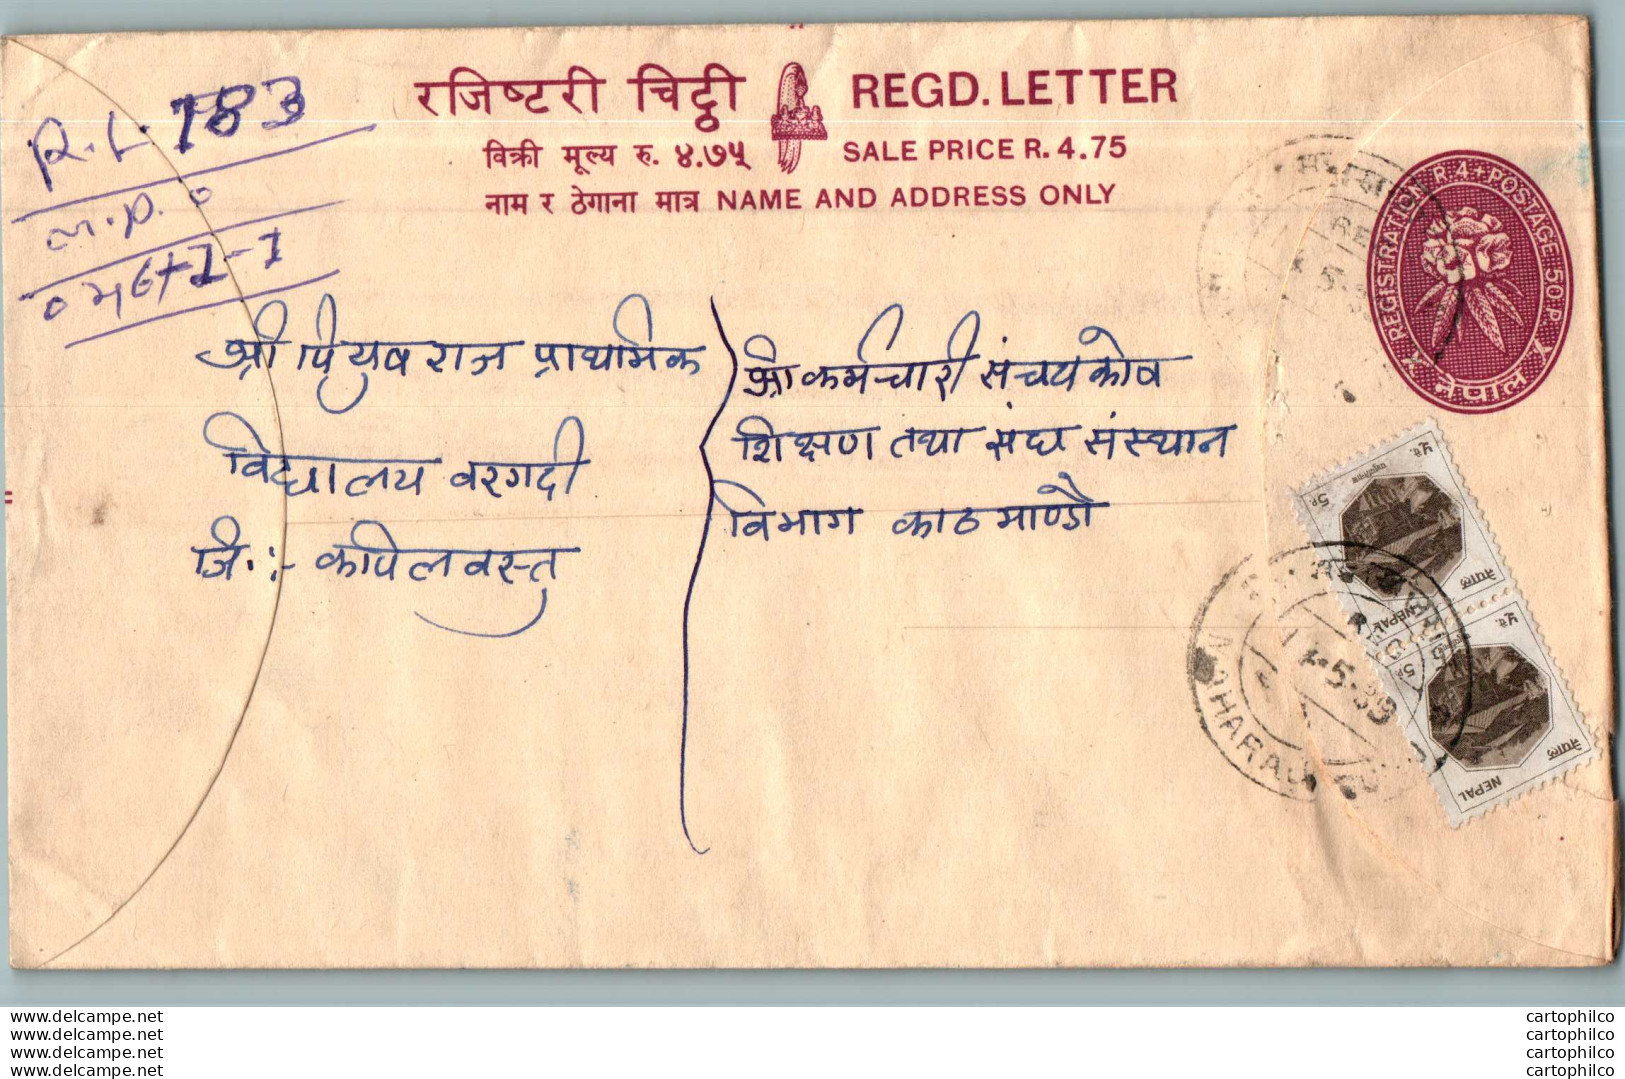 रजिष्टरी चिट्ठी REGD. LETTER
विक्री मूल्य रु. ४.७५ SALE PRICE R. 4.75
नाम र ठेगाना मात्र NAME AND ADDRESS ONLY
R.L. 783
REGISTRATION R.4+POSTAGE 50 P.
नेपाल
श्री पियुष राज प्राथमिक
विद्यालय वरगदी
जि.:- कपिलवस्तु
श्री कर्मचारी संचयकोष
शिक्षण तथा संघ संस्थान
विभाग काठमाण्डौ
नेपाल NEPAL 5P.
नेपाल NEPAL 5P.
www.delcampe.net
www.delcampe.net
www.delcampe.net
www.delcampe.net
cartophilco
cartophilco
cartophilco
cartophilco